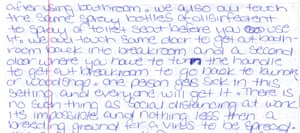 after using bathroom. we also all touch
the same spray bottles of disinfectent
to spray of toilet seat before you use
it. we all touch same door to get out bath-
room back into breakroom and a second
door where you have to turn the handle
to get out breakroom to go back to laundry
or woodshop. one person gets sick in this
setting and everyone will get it. There is
no such thing as social distancing at work
its impossible and nothing less then a
breeding ground for a virus to be spread.